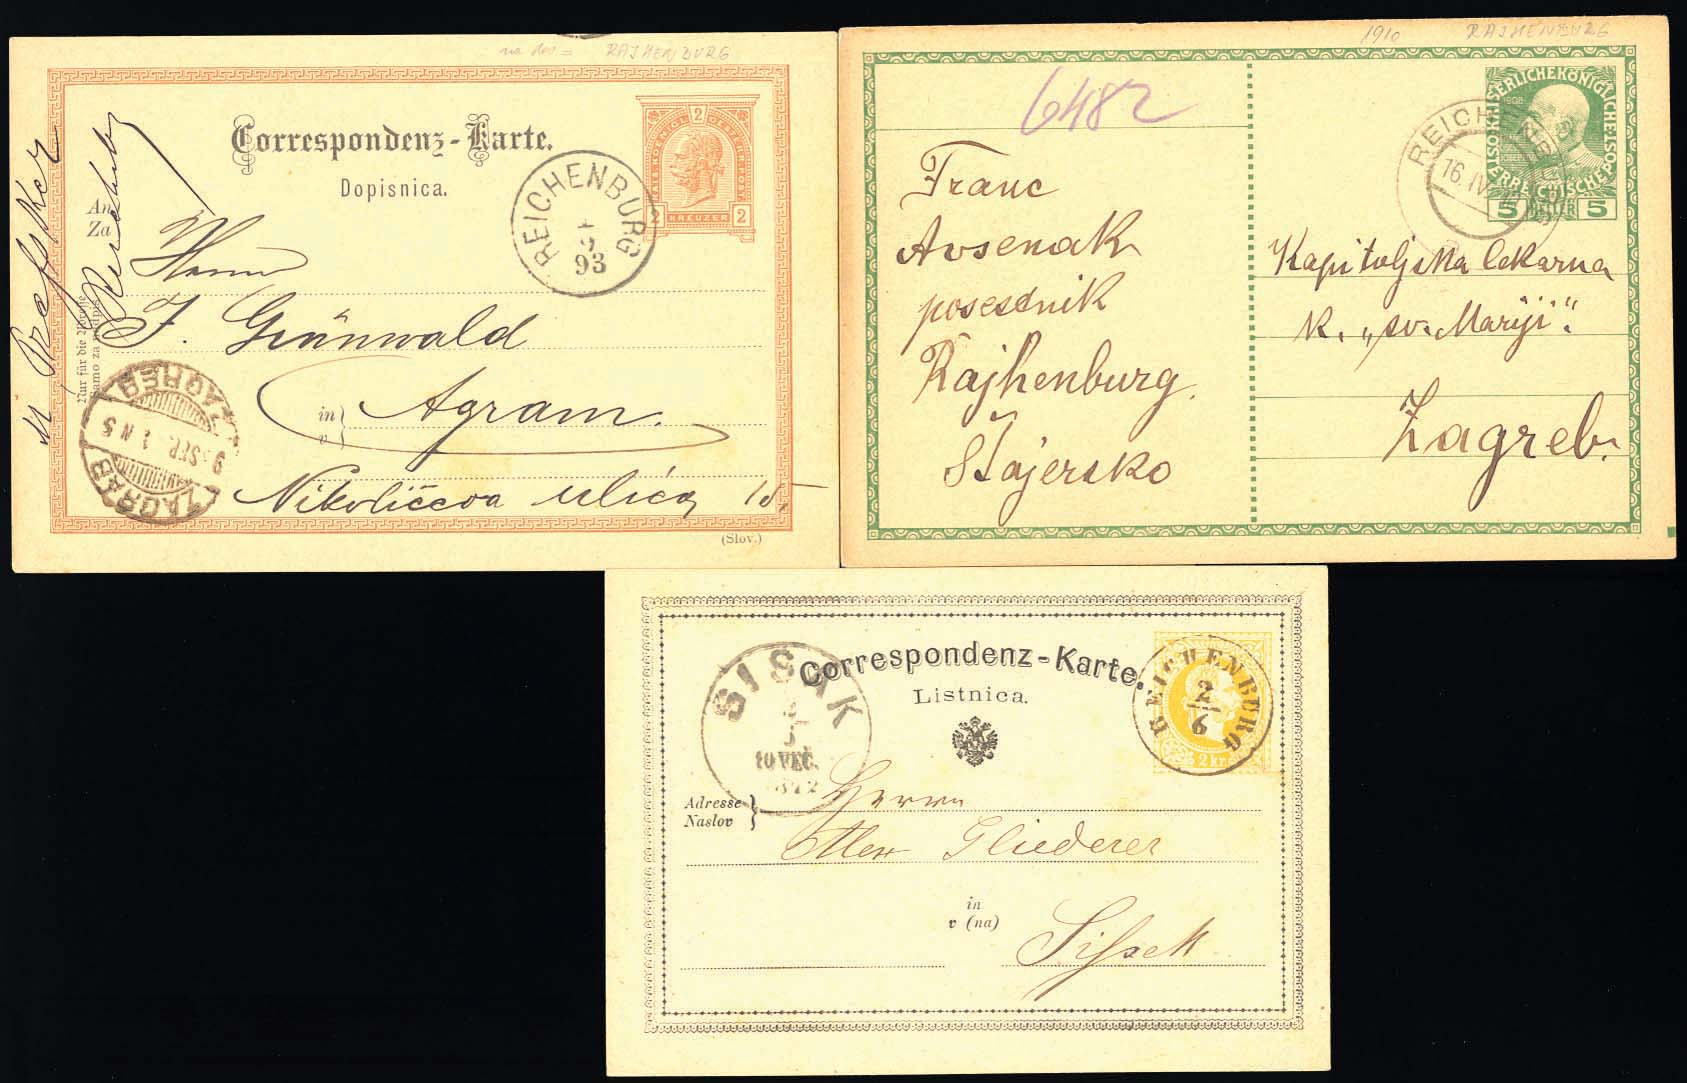 RAJHENBURG
Correspondenz-Karte.
Dopisnica.
2
KREUZER
2 2
REICHENBURG
93
An
Za
Herrn
J. Grünwald
in
v
Agram.
Nikolićeva ulica 15
Nur für die Adresse
Samo za nadpis
ZAGREB
ZAGRAB
(Slov.)
1910 RAJHENBURG
6482
KAISERLICHEKÖNIGLICHE
ÖSTERREICHISCHEPOST
1908
5 HELLER 5
REICHENBURG
16. IV
Franc
Avsenak
posesdnik
Rajhenburg.
Štajersko
Kapitoljska lekarna
k. „sv. Mariji“.
Zagreb.
Correspondenz-Karte.
Listnica.
SISAK
10 VEČ.
1872
REICHENBURG
2
6
2 kr.
Adresse
Naslov
Herrn
Alex Gliederer
in
v (na)
Sissek